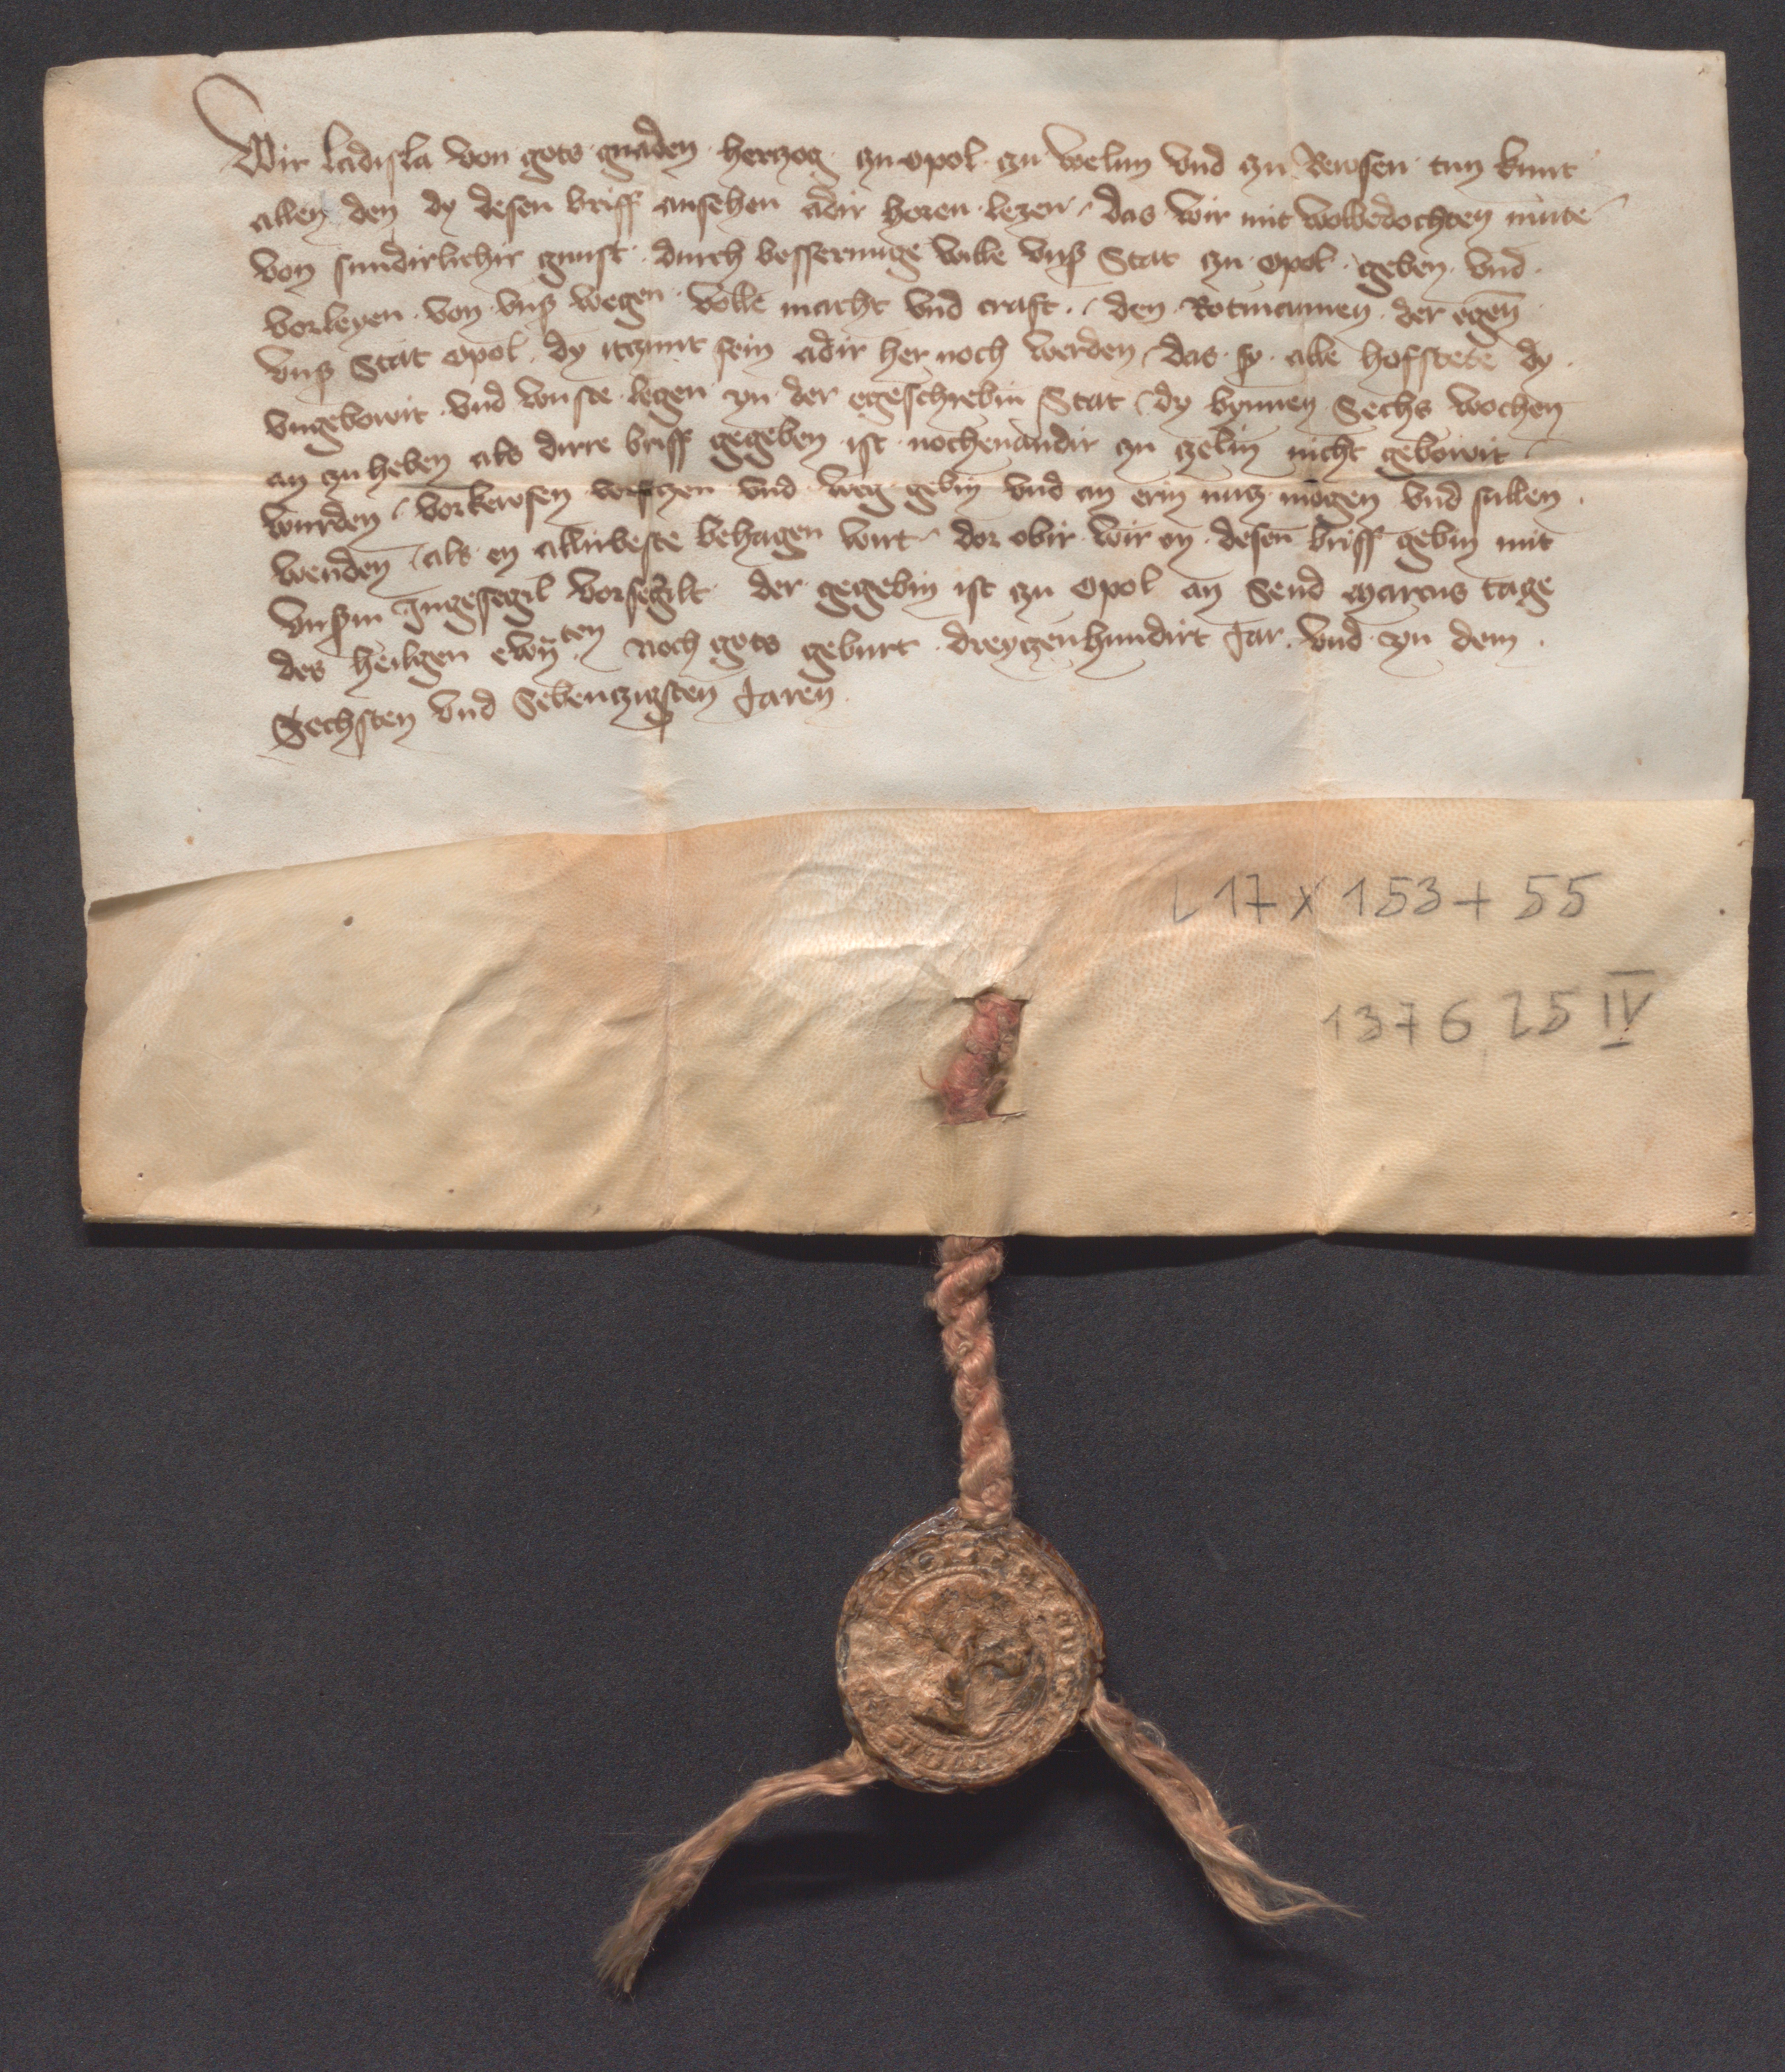 Wir ladisla von gots gnaden herzog zu opol zu welun vnd zu Rewsen tun kunt
allen den dy desen briff ansehen adir horen lezen das wir mit wolbedochten mute
von sundirlichir gunst durch besserunge wille vnß Stat zu opol geben vnd
vorleyen von vnß wegen volle macht vnd craft den Rotmannen der egen
vnß Stat opol dy itzunt sein adir her noch werden das sy alle hofstete dy
vngebowit vnd wuste legen yn der egeschrebin Stat dy bynnen Sechs wochen
an zu heben als dirre briff gegeben ist nochenandir zu zelin nicht gebowit
wurden vorkewfen vnd weg gebin vnd an erin nutz mogen vnd sullen
wenden als en allirbeste behagen wirt dor obir wir en desen briff gebin mit
vnßm Ingesegil vorsegilt der gegebin ist zu opol an Send Marcus tage
des heilgen ewñten noch gots geburt dreyczenhundirt Jar vnd yn dem
Sechsten vnd Sebenczigsten Jaren
L 17 x 153 + 55
1376 25 IV